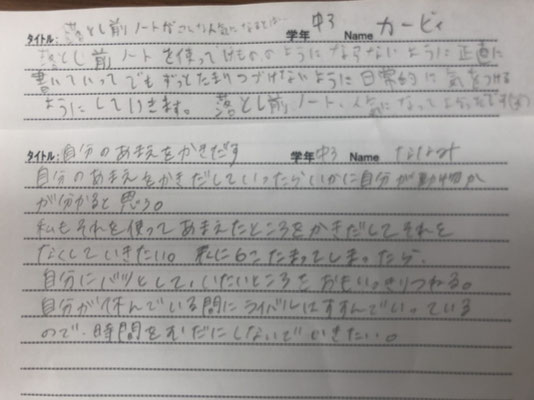 タイトル: 落とし前ノートがこんな人気になるとは… 学年 中3 Name カービィ
落とし前ノートを使ってけもののようにならないように正直に
書いていって でもずっとたまりつづけないように日常的に気をつける
ようにしていきます。 落とし前ノート、人気になってよかったです
タイトル: 自分のあまえをかきだす 学年 中3 Name
自分のあまえをかきだしていったらいかに自分が動物か
が分かると思う。
私もそれを使ってあまえたところをかきだしてそれを
なくしていきたい。 私に6こたまってしまったら、
自分にバツとして、いたいところをおもいっきりつねる。
自分が休んでいる間にライバルはすすんでいっている
ので、時間をむだにしないでいきたい。